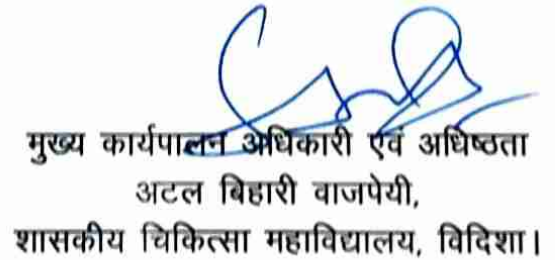 मुख्य कार्यपालन अधिकारी एवं अधिष्ठता
अटल बिहारी वाजपेयी,
शासकीय चिकित्सा महाविद्यालय, विदिशा।